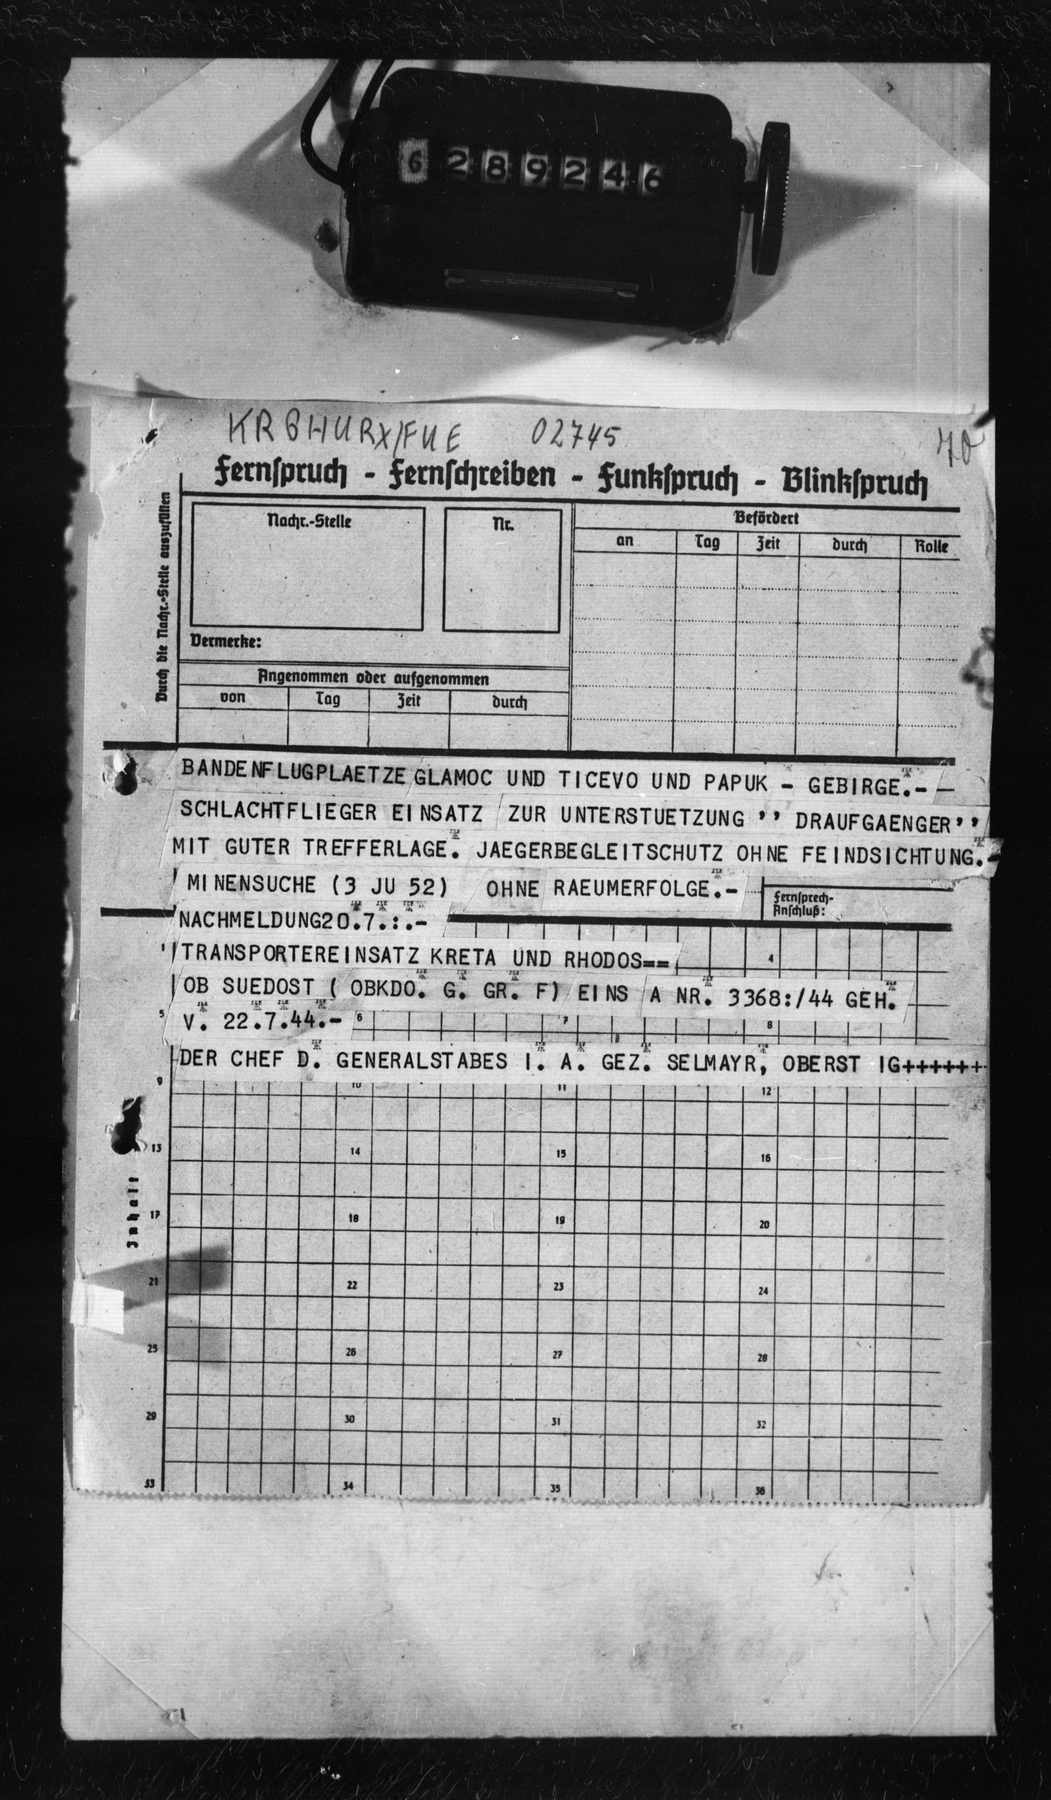 6289246
KR GHURX/FUE 02745
70
Fernspruch - Fernschreiben - Funkspruch - Blinkspruch
Durch die Nachr.-Stelle auszufüllen
Nachr.-Stelle
Nr.
Befördert
an Tag Zeit durch Rolle
Vermerke:
Angenommen oder aufgenommen
von Tag Zeit durch
BANDENFLUGPLAETZE GLAMOC UND TICEVO UND PAPUK - GEBIRGE.- -
SCHLACHTFLIEGER EINSATZ ZUR UNTERSTUETZUNG '' DRAUFGAENGER''
MIT GUTER TREFFERLAGE. JAEGERBEGLEITSCHUTZ OHNE FEINDSICHTUNG.-
MINENSUCHE (3 JU 52) OHNE RAEUMERFOLGE.-
Fernsprech-
Anschluß:
NACHMELDUNG20.7.:.-
TRANSPORTEREINSATZ KRETA UND RHODOS==
4
OB SUEDOST ( OBKDO. G. GR. F) EINS A NR. 3368:/44 GEH.
V. 22.7.44.-
5 6 7 8
DER CHEF D. GENERALSTABES I. A. GEZ. SELMAYR, OBERST IG++++++
9 10 11 12
13 14 15 16
Inhalt
17 18 19 20
21 22 23 24
25 26 27 28
29 30 31 32
33 34 35 36